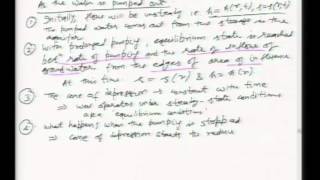 As the water is pumped out
① Initially, flow will be unsteady i.e. h = h(r,t), s = s(r,t)
The pumped water comes out from the storage in the
aquifer
② With prolonged pumping, equilibrium state is reached
betn rate of pumping and the rate of inflow of
groundwater from the edges of area of influence
At this time s = s(r) & h = h(r)
③ The cone of depression is constant with time
⇒ well operates under steady-state conditions
a.k.a equilibrium conditions
④ What happens when the pumping is stopped
⇒ cone of depression starts to reduce